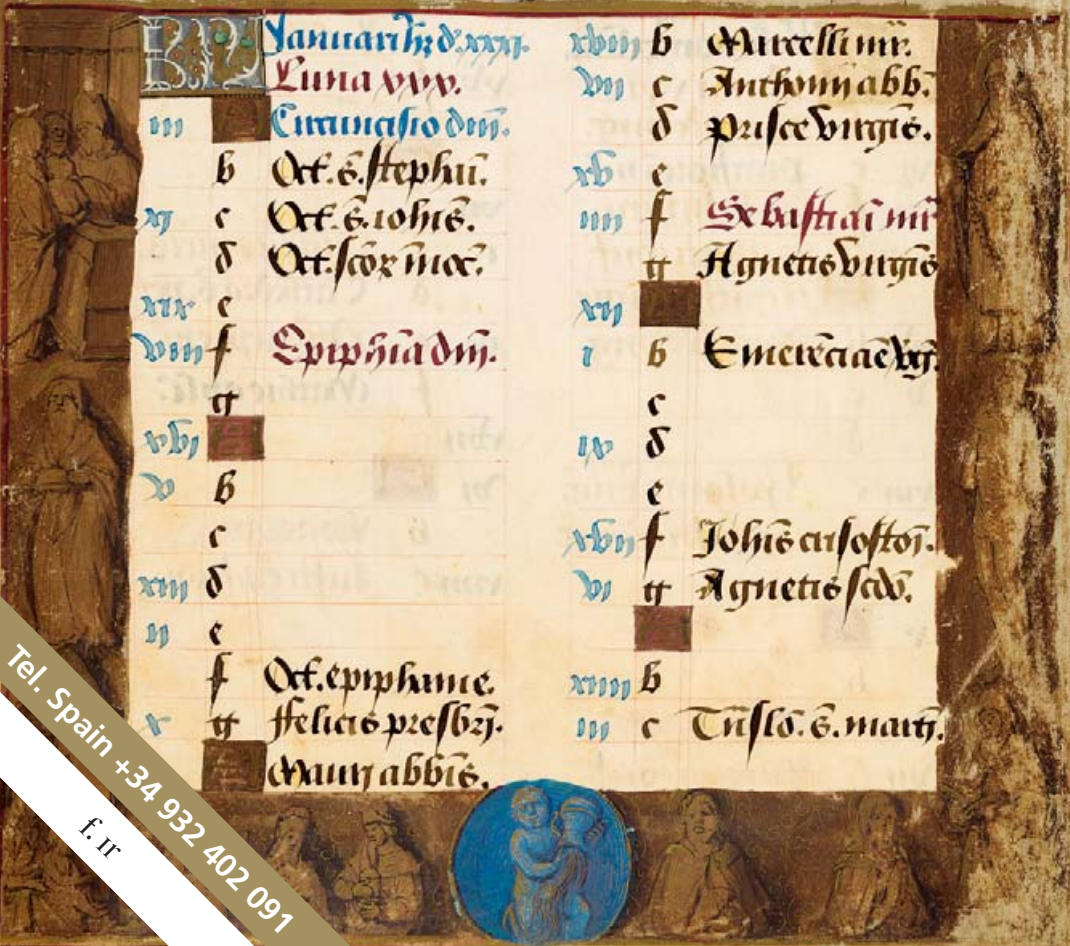 KL Januari' hʒ d. xxxi.
Luna xxx.
iii Circuncisio dñi.
b Oct. s. stephñ.
xi c Oct. s. iohis.
d Oct. scoꝝ inoc.
xix e
viii f Epiphia dñi.
g
xvi
v b
c
xiii d
ii e
f Oct. epiphanie.
x g ffelicis presbrj.
Mauri abbis.
xviii b Marcelli mr.
vii c Anthonij abb.
d prisce virgis.
xv e
iiii f Sebastiai mr
g Agnetis virgis
xii
i b Emerēciae vg.
c
ix d
e
xvii f Johis crisostoj.
vi g Agnetis scdo.
xiiii b
iii c Tnslo. s. marcj.
Tel. Spain +34 932 402 091
f. 1r